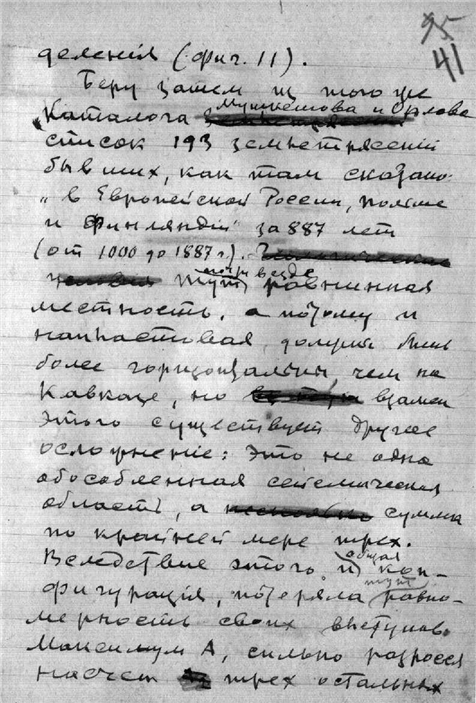 95
41
деленія (фиг. 11).
Беру затем из того же
"Каталога Мушкетова и Орлова
список 193 землетрясений
бывших, как там сказано
"в Европейской России, Польше
и Финляндии" за 887 лет
(от 1000 до 1887 г.).
Тут почти везде равнинная
местность, а потому и
напластования, должны быть
более горизонтальны, чем на
Кавказе, но взамен
этого существует другое
осложнение: это не одна
обособленная сейсмическая
область, а сумма
по крайней мере трех.
Вследствие этого и общая кон-
фигурація, потеряла тут равно-
мерность своих выступов.
Максимум А, сильно разросся
насчет трех остальных